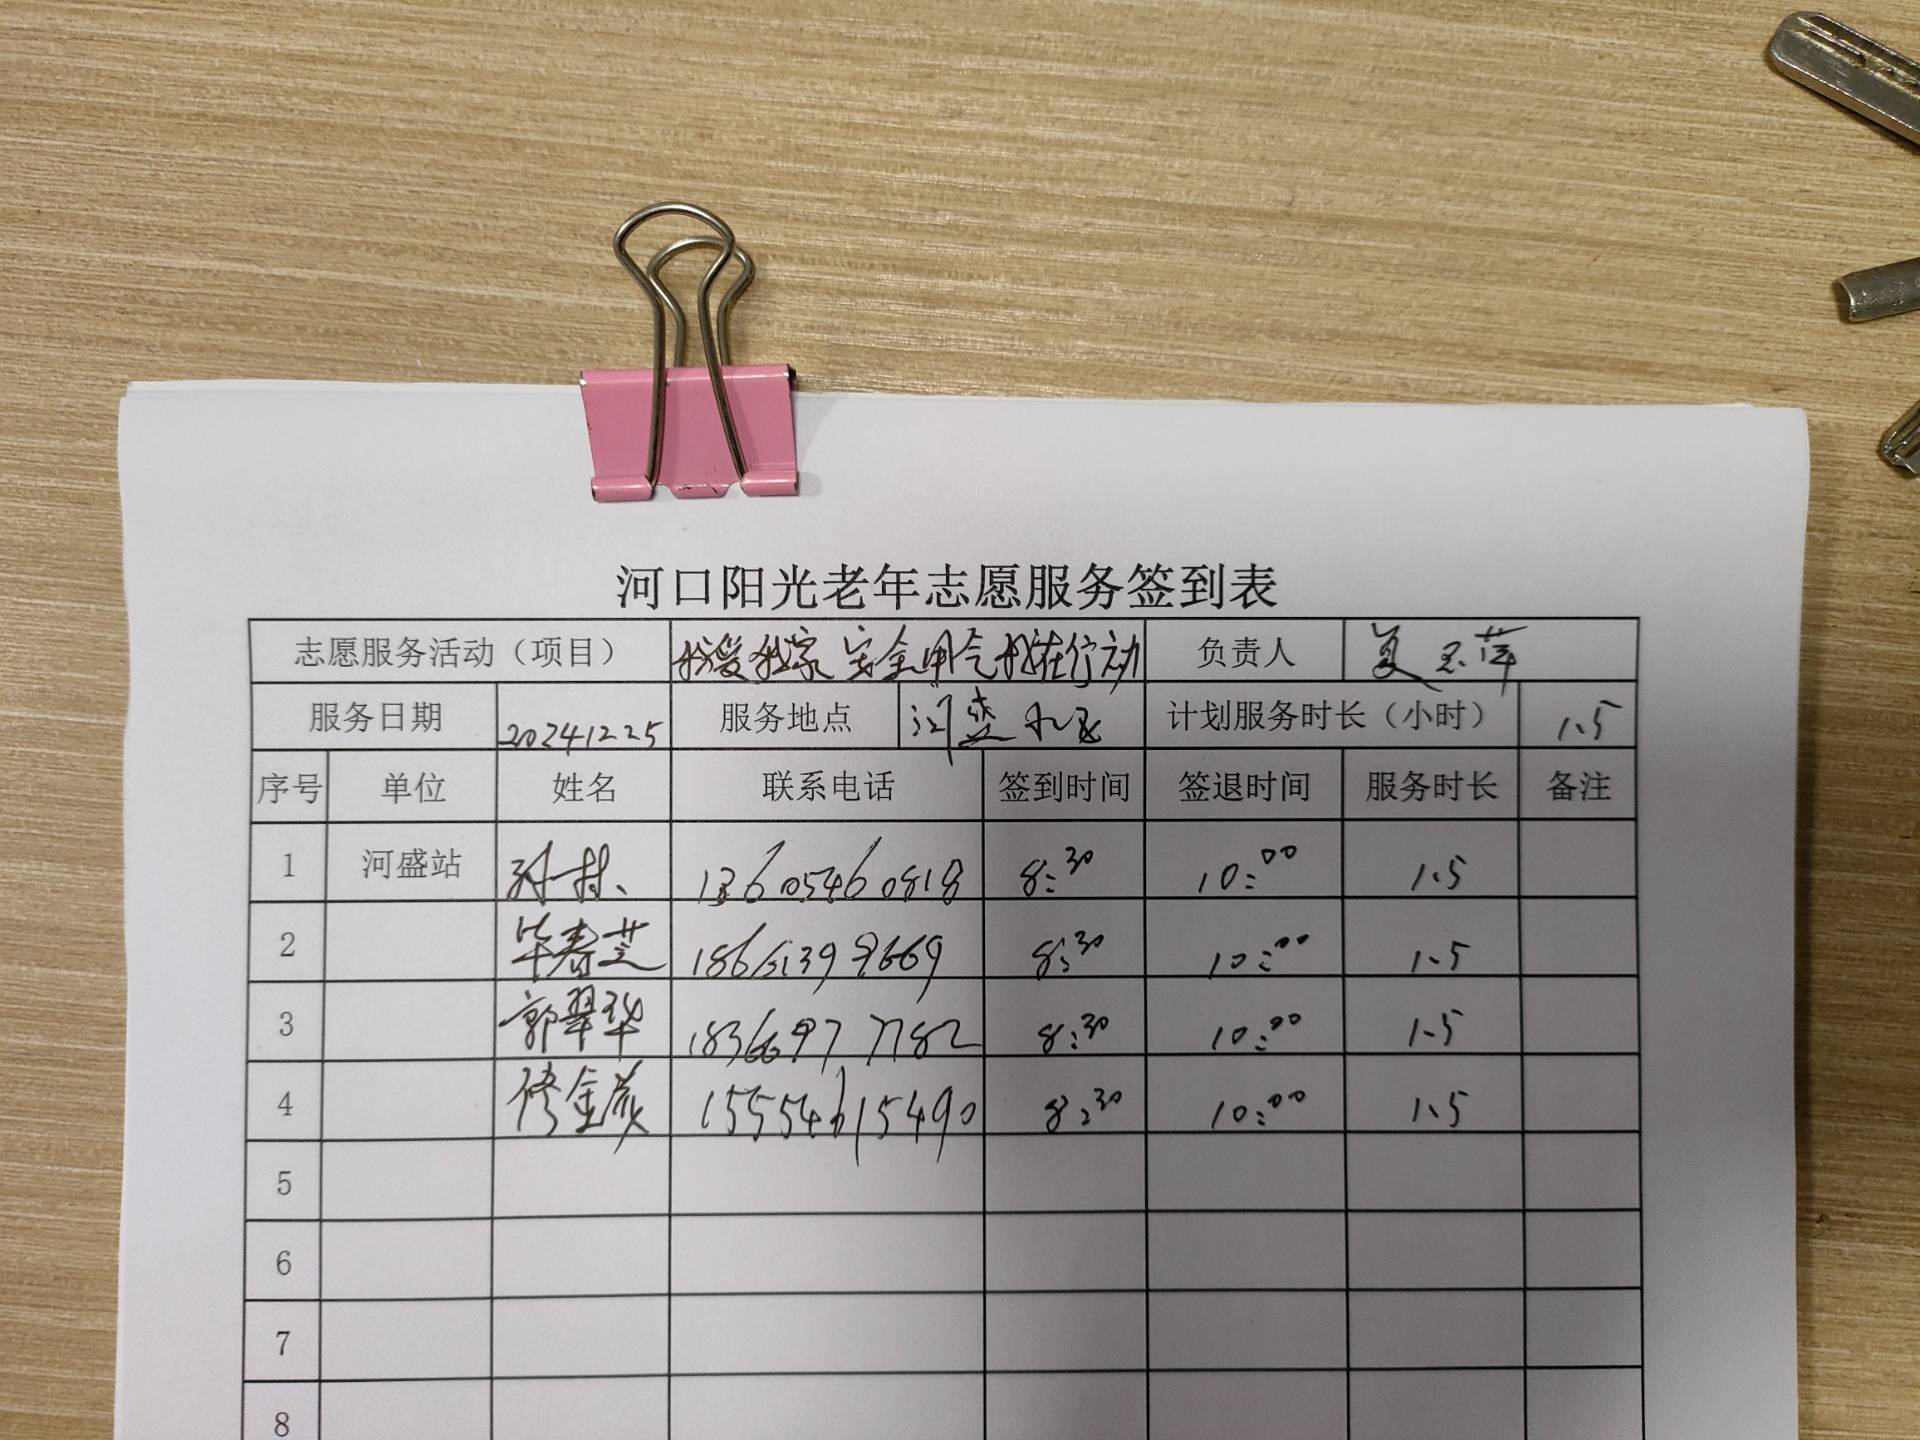 河口阳光老年志愿服务签到表
志愿服务活动（项目） 我爱我家 安全用气 我在行动 负责人
服务日期 20241225 服务地点 河盛 计划服务时长（小时） 1.5
序号 单位 姓名 联系电话 签到时间 签退时间 服务时长 备注
1 河盛站 13605460818 8:30 10:00 1.5
2 毕春芝 8:30 10:00 1.5
3 郭翠华 18366977782 8:30 10:00 1.5
4 修金 15554615490 8:30 10:00 1.5
5
6
7
8